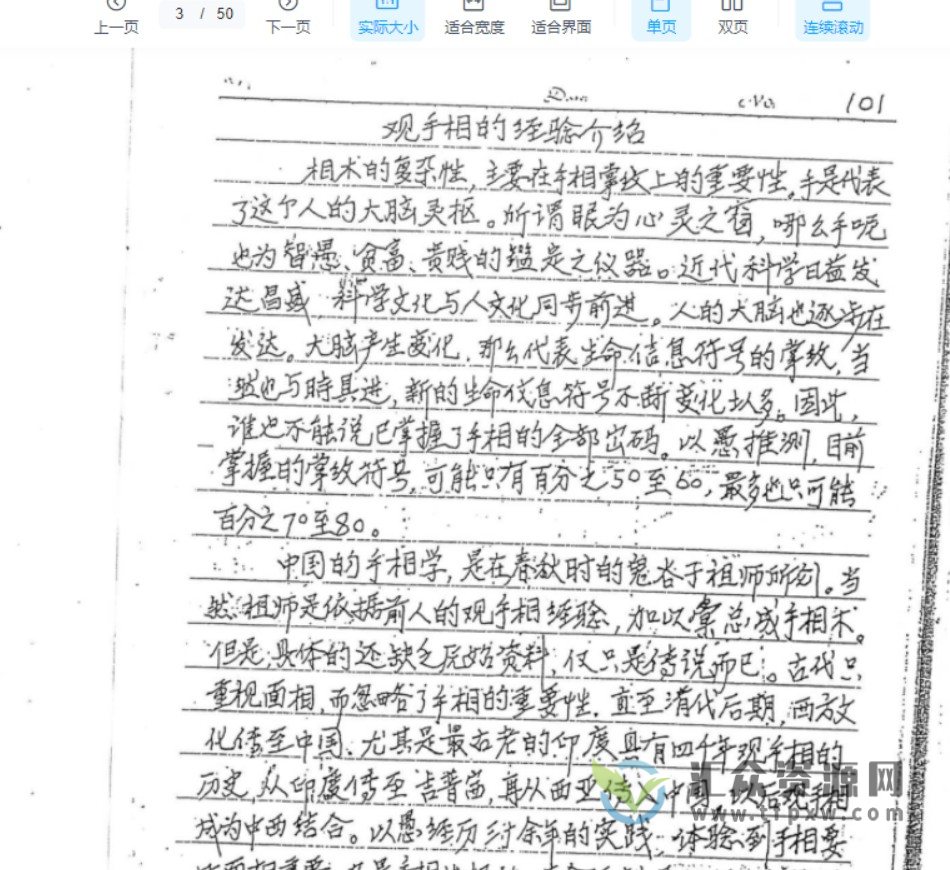 上一页 3 / 50 下一页 实际大小 适合宽度 适合界面 单页 双页 连续滚动
Date No. 101
观手相的经验介绍
相术的复杂性,主要在手相掌纹上的重要性。手是代表
了这个人的大脑灵枢。所谓眼为心灵之窗,哪么手呢
也为智愚、贫富、贵贱的鑑定之仪器。近代科学日益发
达昌盛,科学文化与人文化同步前进。人的大脑也逐步在
发达。大脑产生变化,那么代表生命信息符号的掌纹,当
然也与時具进,新的生命信息符号不断变化增多。因此,
谁也不能说已掌握了手相的全部密码。以愚推测,目前
掌握的掌纹符号,可能只有百分之50至60,最多也只可能
百分之70至80。
中国的手相学,是在春秋时的鬼谷子祖师所创。当
然祖师是依据前人的观手相经验,加以汇总成手相术。
但是,具体的还缺乏原始资料,仅只是传说而已。古代只
重视面相,而忽略了手相的重要性,直至清代后期,西方文
化传至中国,尤其是最古老的印度具有四千年观手相的
历史,从印度传至吉普茜,再从西亚传入中国,以后观手相
成为中西结合。以愚经历卅余年的实践,体验到手相要
汇众资源网
www.tipxw.com